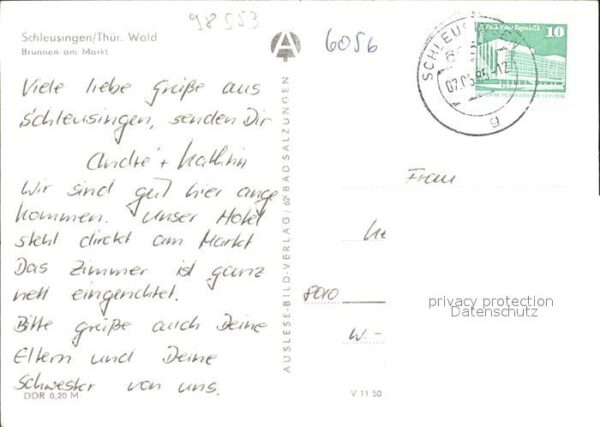 98553
Schleusingen/Thür. Wald
Brunnen am Markt
6056
10
Palast der Republik
SCHLEUSINGEN
g
Viele liebe grüße aus
Schleusingen, senden Dir
André + Kathrin
Wir sind gut hier ange
kommen. Unser Hotel
steht direkt am Markt
Das Zimmer ist ganz
nett eingerichtet.
Bitte grüße auch Deine
Eltern und Deine
Schwester von uns.
DDR 0,20 M
AUSLESE-BILD-VERLAG/62 BAD SALZUNGEN
V 11 50
Frau
8010
W.-
privacy protection
Datenschutz